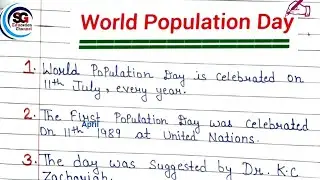 SG
Education
Channel
World Population Day
1. World Population Day is celebrated on
11th July, every year.
2. The First Population Day was celebrated
on 11th April 1989 at United Nations.
3. The day was suggested by Dr. K.C
Zachariah.